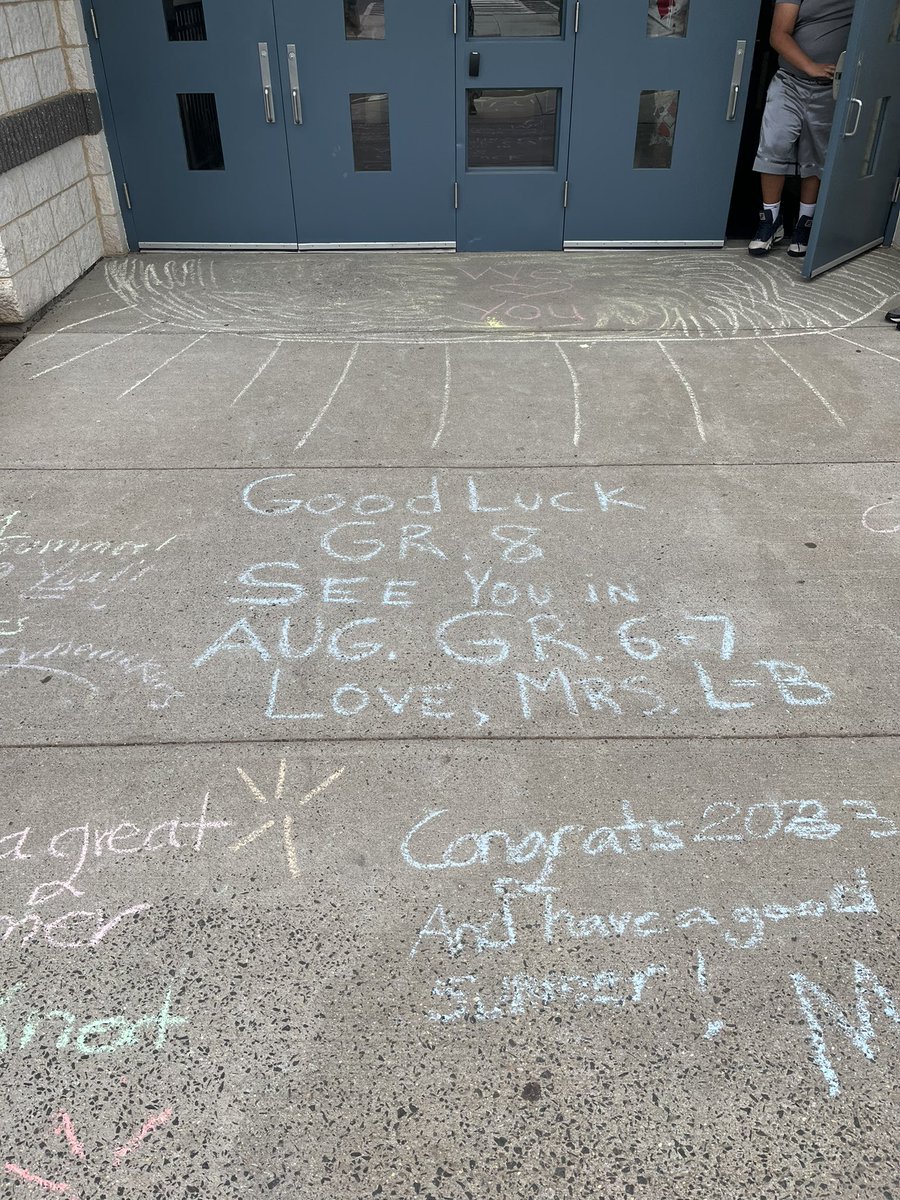 We
You
Good Luck
GR. 8
SEE YOU IN
AUG. GR. 6-7
LOVE, MRS. L-B
Summer!
You!!
a great
Congrats 2023
And have a good
summer!
not
M